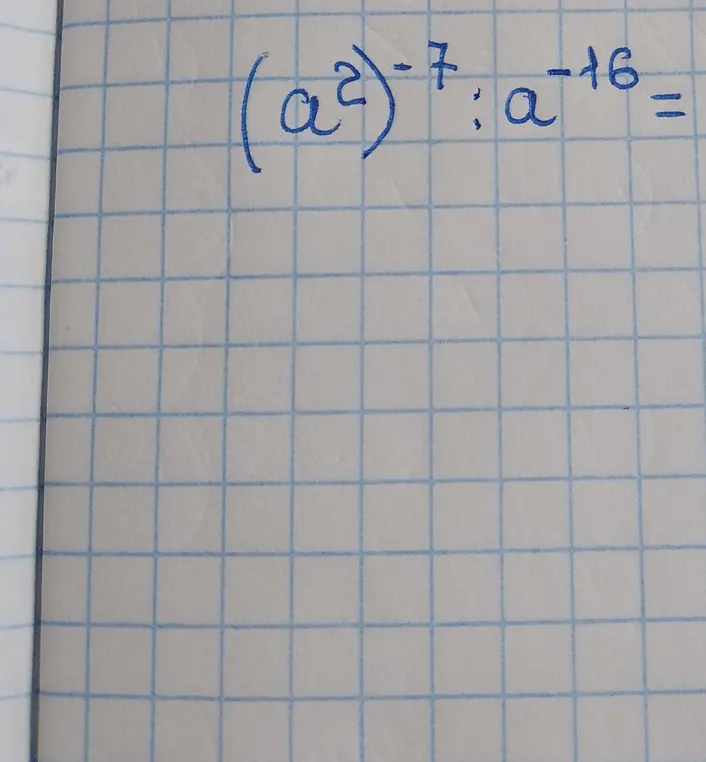 (a²)⁻⁷ : a⁻¹⁶ =